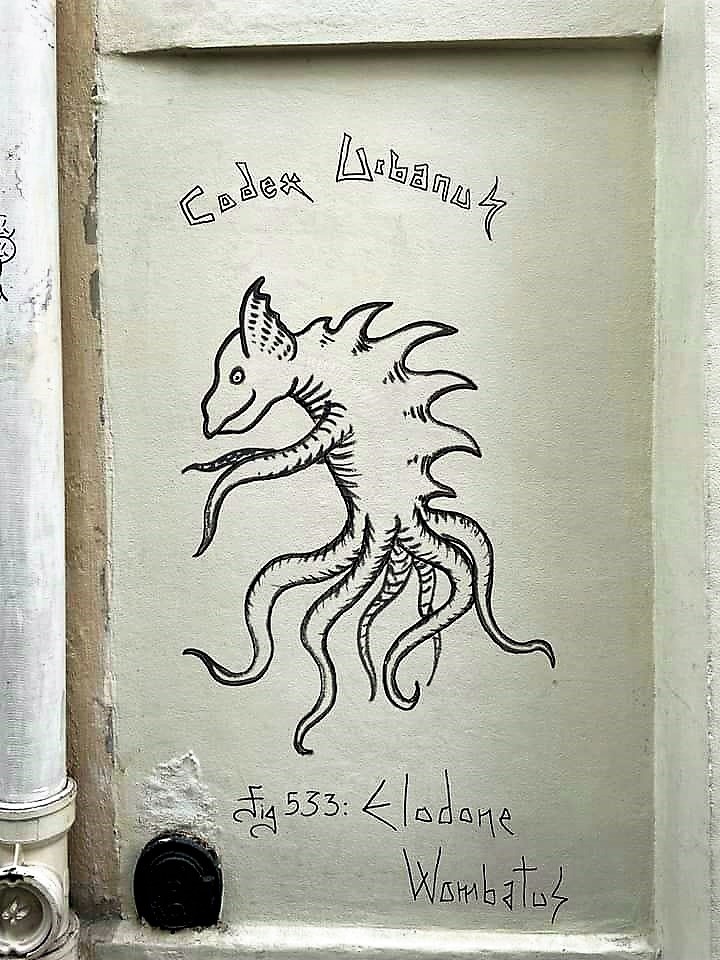 Codex Urbanus
Fig 533: Elodone
Wombatus